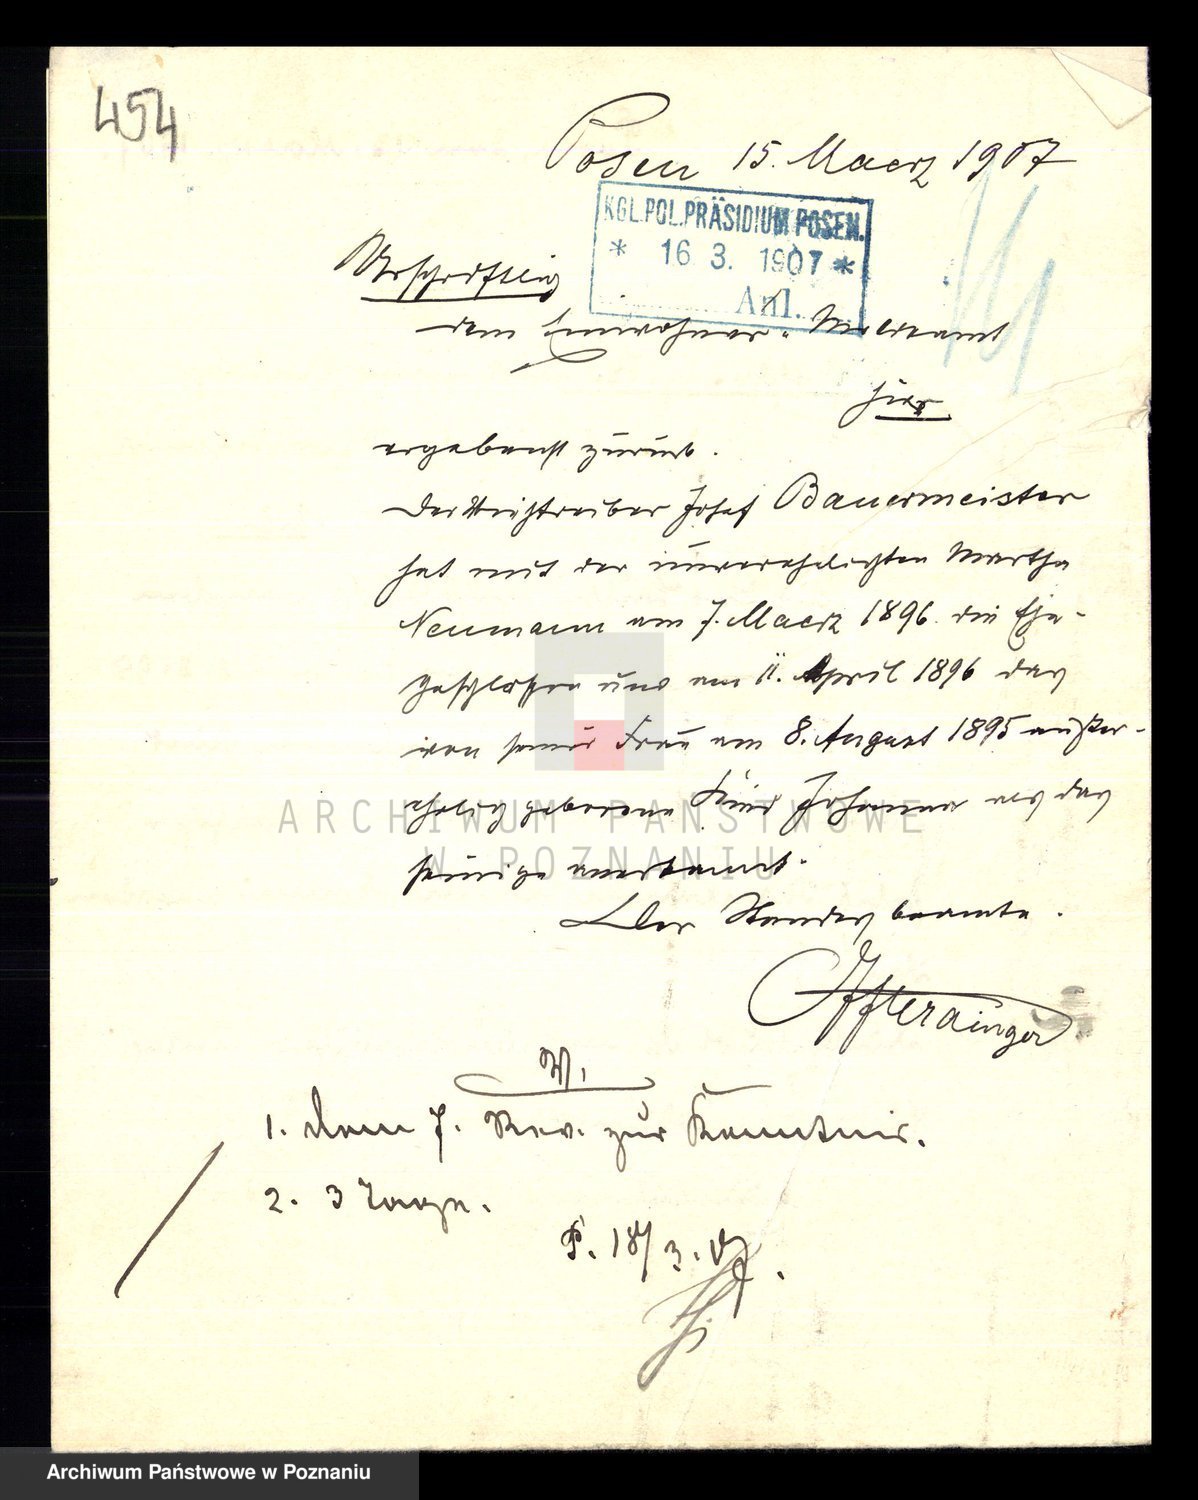 454
Posen 15. Maerz 1907
KGL.POL.PRÄSIDIUM POSEN.
* 16 3. 1907 *
Anl.
Urschriftlich
dem Einwohner-Meldeamt
hier
ergebenst zurück.
Der Viehtreiber Josef Bauermeister
hat mit der unverehelichten Martha
Neumann am 7. Maerz 1896 die Ehe
geschlossen und am 11. April 1896 das
von seiner Frau am 8. August 1895 außer-
ehelich geborene Kind Johanna als das
seinige anerkannt.
Der Standesbeamte.
W.
1. Dem 7. Rev. zur Kenntnis.
2. 3 Tage.
P. 18/3. 07.
ARCHIWUM PAŃSTWOWE
W POZNANIU
Archiwum Państwowe w Poznaniu